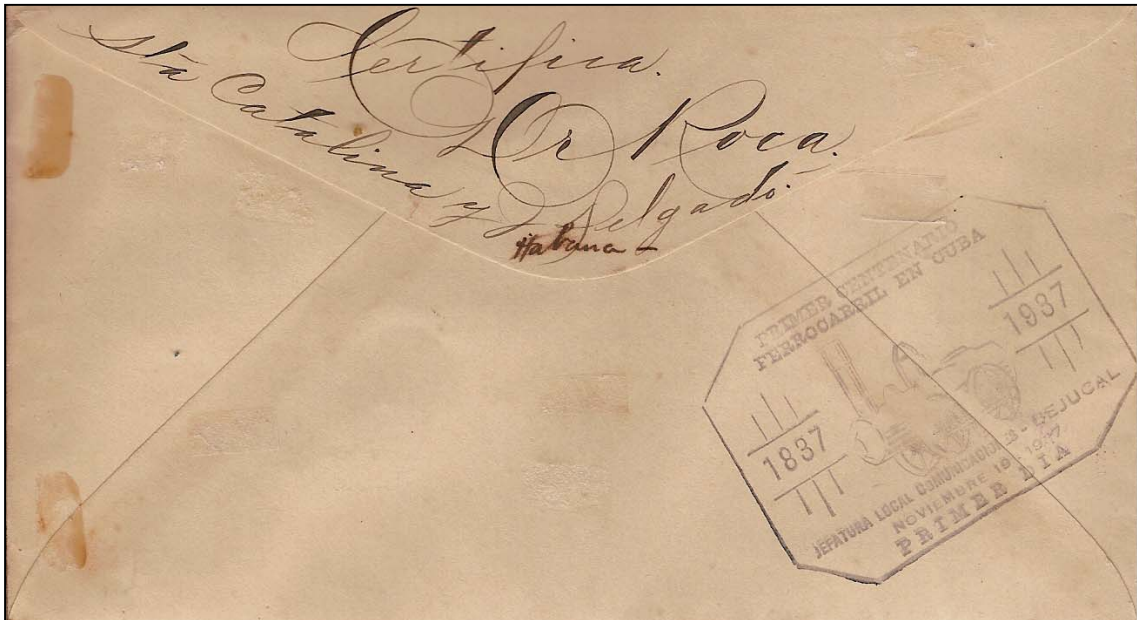 Certifica.
Dr Roca.
Sta Catalina y J Delgado.
Habana -
PRIMER CENTENARIO
FERROCARRIL EN CUBA
1937
1837
JEFATURA LOCAL COMUNICACIONES - BEJUCAL
NOVIEMBRE 19 1937
PRIMER DIA